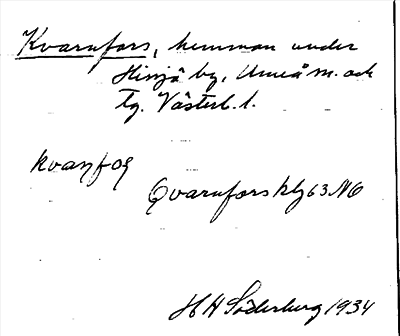 Kvarnfors, hemman under
Hissjö by, Umeå m. och
tg. Västerb. l.
kvaɳfoʂ
Qvarnfors kbg 63 NO
H H Söderberg 1934